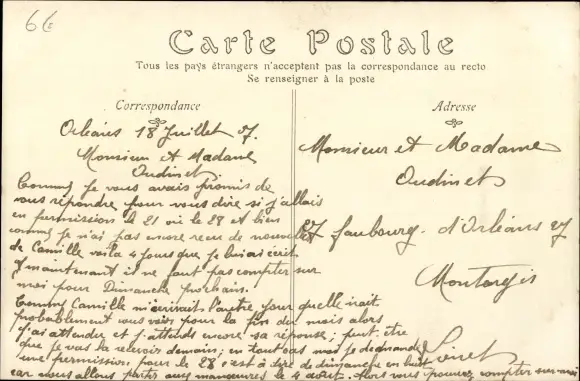 66
Carte Postale
Tous les pays étrangers n'acceptent pas la correspondance au recto
Se renseigner à la poste
Correspondance
Adresse
Orléans 18 Juillet 07.
Monsieur et Madame
Oudinet
Comme Je vous avais promis de
vous répondre pour vous dire si j'allais
en permission le 21 où le 28 et bien
comme je n'ai pas encore recu de nouvelles
de Camille voila 4 jours que je lui ai écrit
maintenant il ne faut pas compter sur
moi pour Dimanche prochain.
Comme Camille m'écrivait l'autre jour quelle irait
probablement vous voir pour la fin du mois alors
j'ai attendre et j'attends encore sa réponse; peut être
que je vas la recevoir demain; en tout cas moi je demande
une permission pour le 28 c'est à dire de dimanche en huit
car nous allons partir aux manoeuvres le 4 août. Alors vous pouvez compter sur moi
Monsieur et Madame
Oudinet
27 faubourg d'Orléans 27
Montargis
Loiret